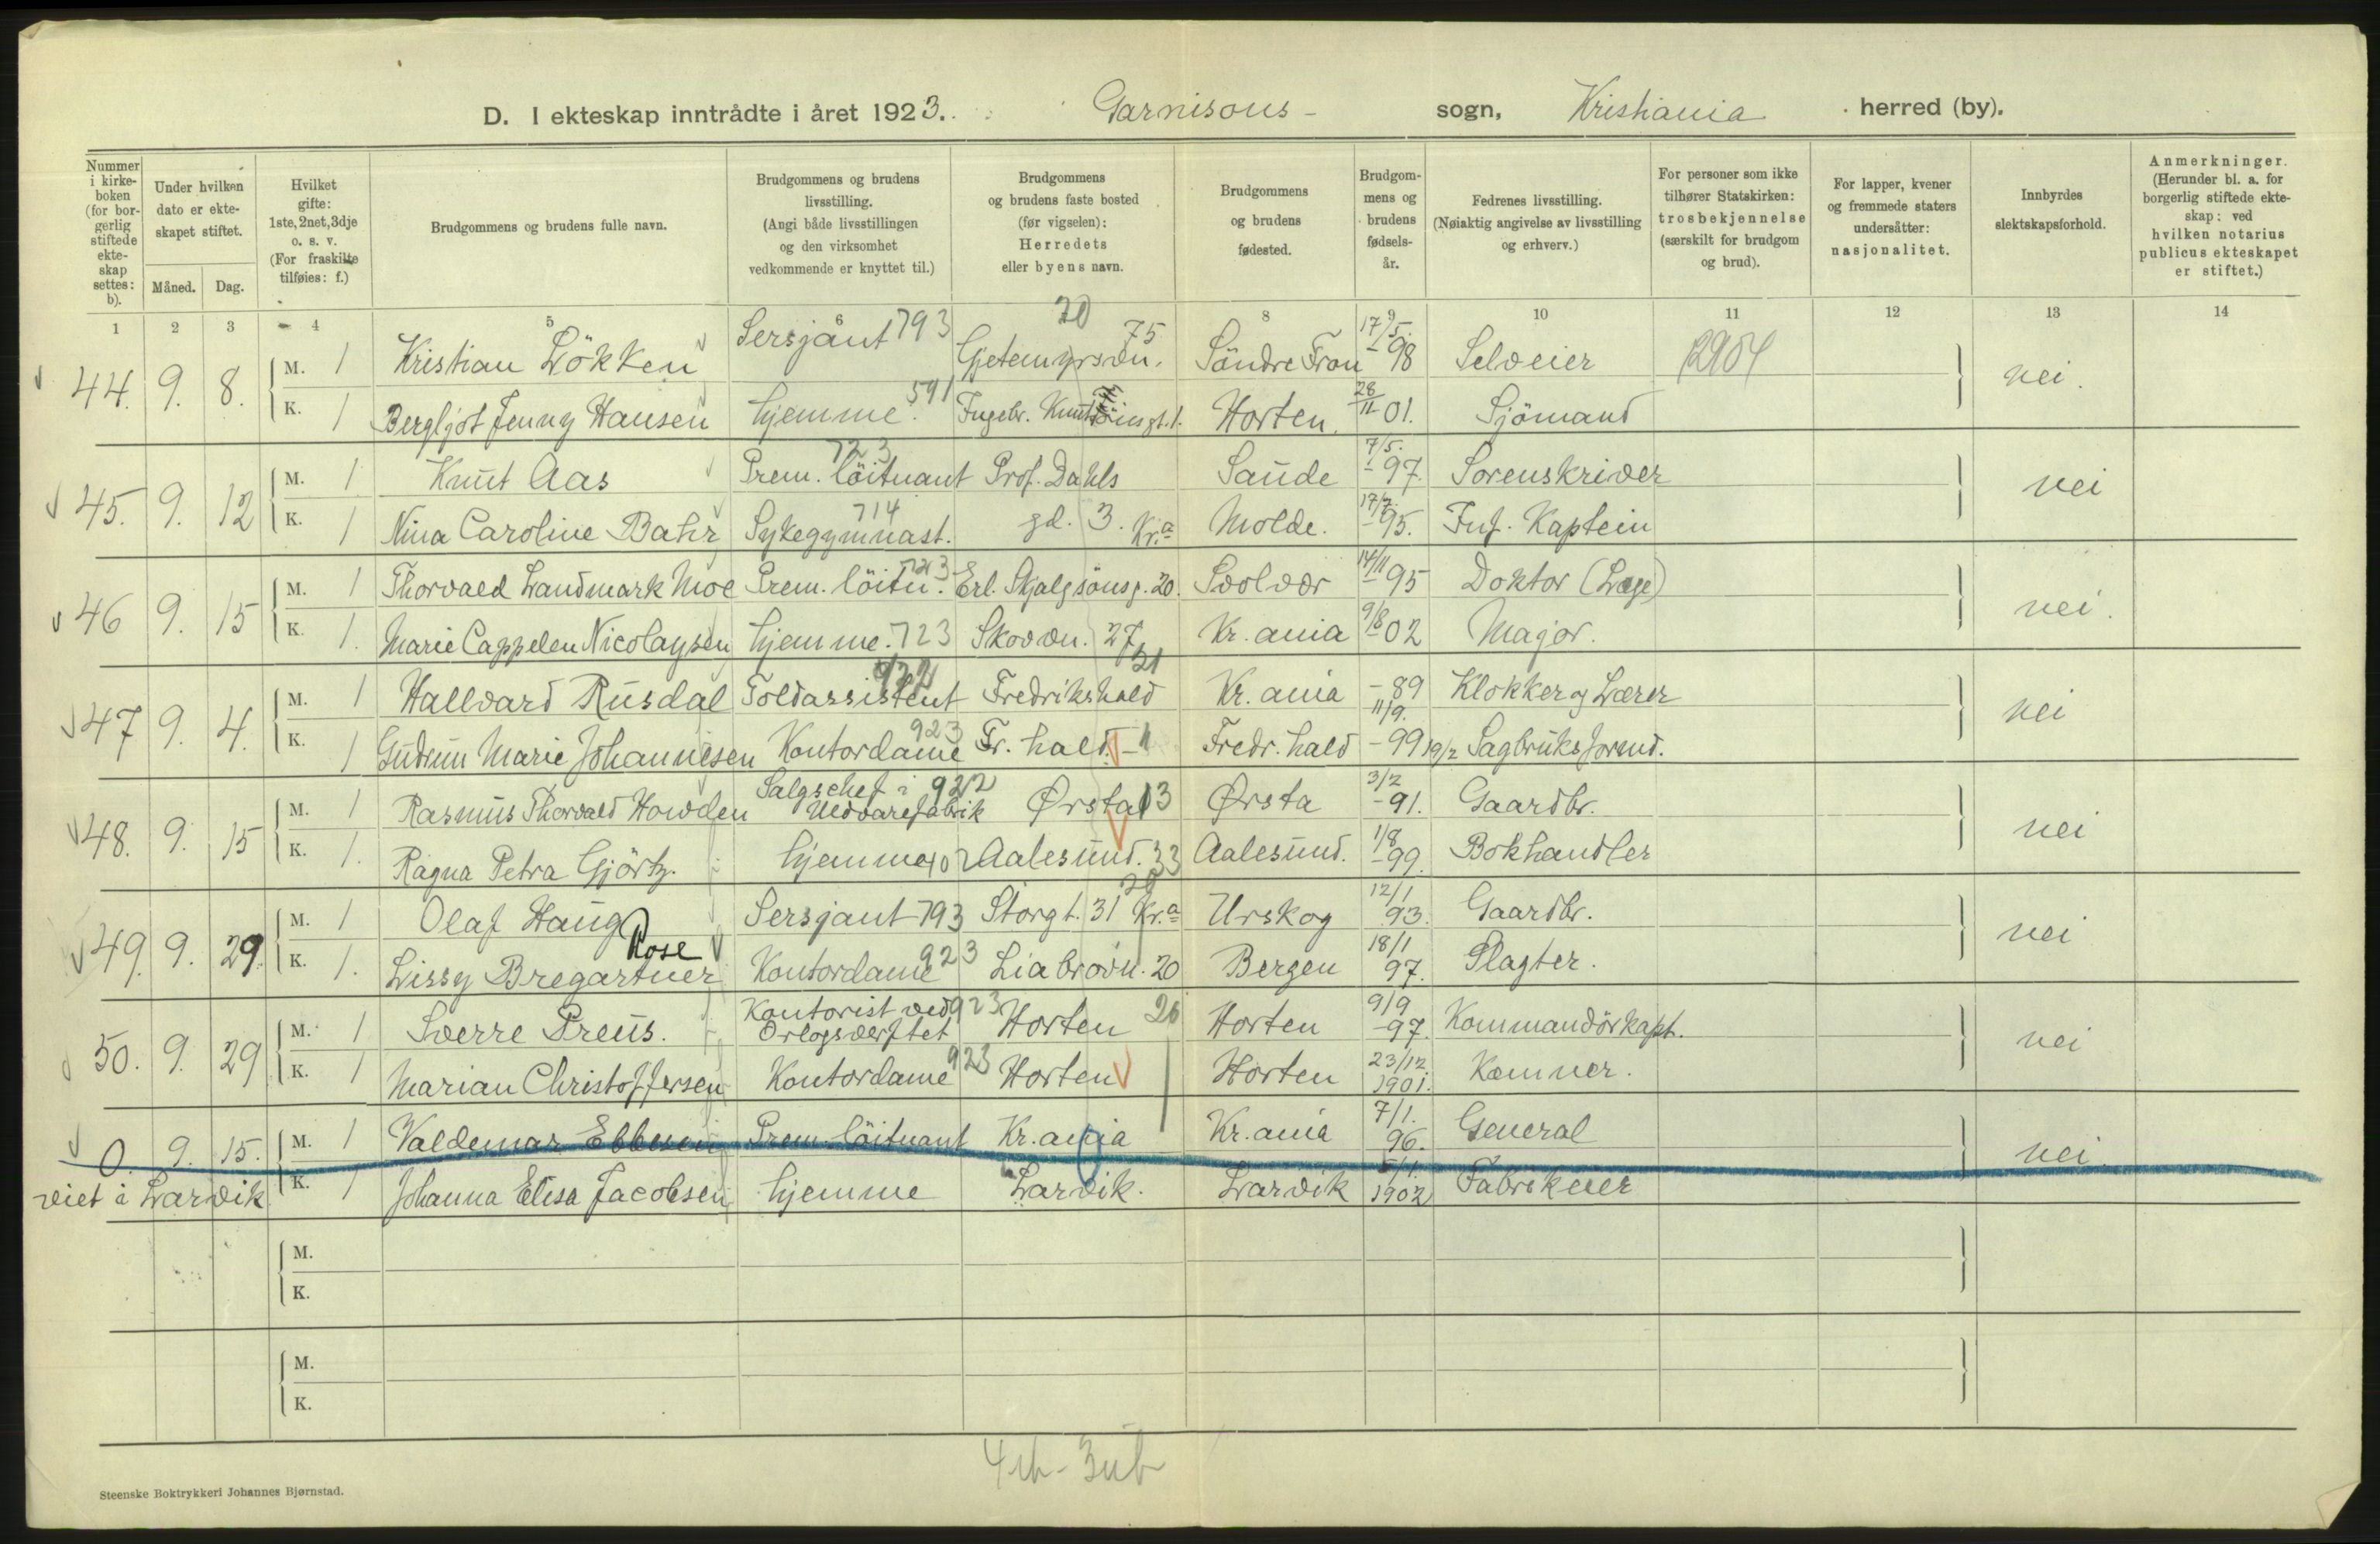 D. I ekteskap inntrådte i året 1923. Garnisons- sogn, Kristiania herred (by).
Nummer i kirke- boken (for bor- gerlig stiftede ekte- skap settes: b).
Under hvilken dato er ekte- skapet stiftet.
Måned. Dag.
Hvilket gifte: 1ste, 2net, 3dje o. s. v. (For fraskilte tilføies: f.)
Brudgommens og brudens fulle navn.
Brudgommens og brudens livsstilling. (Angi både livsstillingen og den virksomhet vedkommende er knyttet til.)
Brudgommens og brudens faste bosted (før vigselen): Herredets eller byens navn.
Brudgommens og brudens fødested.
Brudgom- mens og brudens fødsels- år.
Fedrenes livsstilling. (Nøiaktig angivelse av livsstilling og erhverv.)
For personer som ikke tilhører Statskirken: trosbekjennelse (særskilt for brudgom og brud).
For lapper, kvener og fremmede staters undersåtter: nasjonalitet.
Innbyrdes slektskapsforhold.
Anmerkninger. (Herunder bl. a. for borgerlig stiftede ekte- skap: ved hvilken notarius publicus ekteskapet er stiftet.)
1 2 3 4 5 6 8 9 10 11 12 13 14
44. 9. 8. M. 1 Kristian Lökken Sersjant 793 20 Gjetemyrsvn. 75 Söndre Fron 17/5. -98 Selveier 2904 nei.
K. 1 Bergljot Jenny Hansen hjemme. 591 Horten. 28/11 01. Sjömand
45. 9. 12 M. 1 Knut Aas Prem. löitnant 723 Prof. Dahls Saude 7/5. -97. Sorenskriver nei
K. 1 Nina Caroline Bahr Sykegymnast. 714 gd. 3. Kr.a Molde. 17/7 -95. Inf. Kaptein
46 9. 15 M. 1 Thorvald Landmark Moe Prem. löitn. 723 Erl. Skjalgsönsg. 20. Svolvær 14/11 -95 Doktor (Læge) nei.
K. 1. Marie Cappelen Nicolaysen hjemme. 723 Skovvn. 27 Kr.ania 9/8 -02 Major.
47 9. 4. M. 1 Hallvard Rusdal Toldassistent 922 Fredrikshald 21 Kr.ania -89 11/9. Klokker og Lærer nei
K. 1 Gudrun Marie Johannesen Kontordame 923 Fr.hald. -"- Fredr.hald -99 19/2 Sagbruksformd.
48. 9. 15 M. 1 Rasmus Thorvald Howden Salgschef i Uldvarefabrik 922 Ørsta 13 Ørsta 3/2 -91. Gaardbr. nei
K. 1. Ragna Petra Gjörtz. hjemme Aalesund. 33 Aalesund. 1/8 -99. Bokhandler
49. 9. 29. M. 1 Olaf Haug Sersjant 793 Storgt. 31 Kr.a Urskog 12/1 93. Gaardbr. nei
K. 1. Lissy Rose Bregartner Kontordame 923 Liabrovn. 20 Bergen 18/1 97. Slagter.
50. 9. 29 M. 1 Sverre Preus. Kontorist ved Orlogsverftet 923 Horten 26 Horten 9/9 -97. Kommandörkapt. nei
K. 1 Marian Christoffersen Kontordame 923 Horten Horten 23/12 1901. Kæmner.
0. 9. 15. M. 1 Valdemar Ebbesen Prem. löitnant Kr.ania Kr.ania 7/1. 96. General nei
viet i Larvik K. 1 Johanna Elisa Jacobsen hjemme Larvik. Larvik 1902 Fabrikeier
M.
K.
M.
K.
Steenske Boktrykkeri Johannes Bjørnstad.